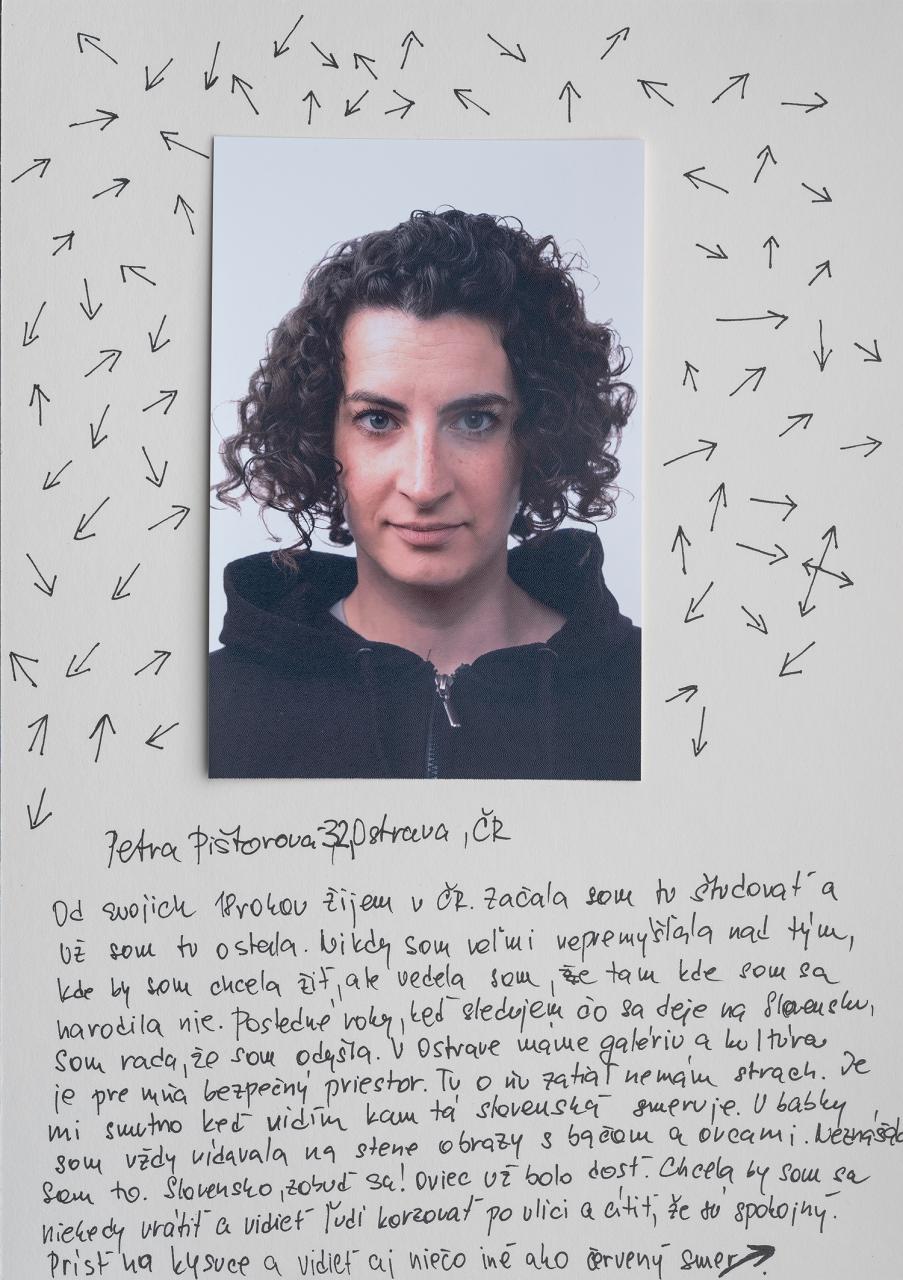 Petra Pištorová 32, Ostrava, ČR
Od svojich 18 rokov žijem v ČR. Začala som tu študovať a
už som tu ostala. Nikdy som veľmi nepremýšľala nad tým,
kde by som chcela žiť, ale vedela som, že tam kde som sa
narodila nie. Posledné roky, keď sledujem čo sa deje na Slovensku,
som rada, že som odyšla. V Ostrave máme galériu a kultúra
je pre mňa bezpečný priestor. Tu o ňu zatiaľ nemám strach. Je
mi smutno keď vidím kam tá slovenská smeruje. U babky
som vždy vídavala na stene obrazy s bačom a ovcami. Neznášala
som to. Slovensko, zobuď sa! Oviec už bolo dosť. Chcela by som sa
niekedy vrátiť a vidieť ľudí korzovať po ulici a cítiť, že sú spokojný.
Prísť na kysuce a vidieť aj niečo iné ako červený smer